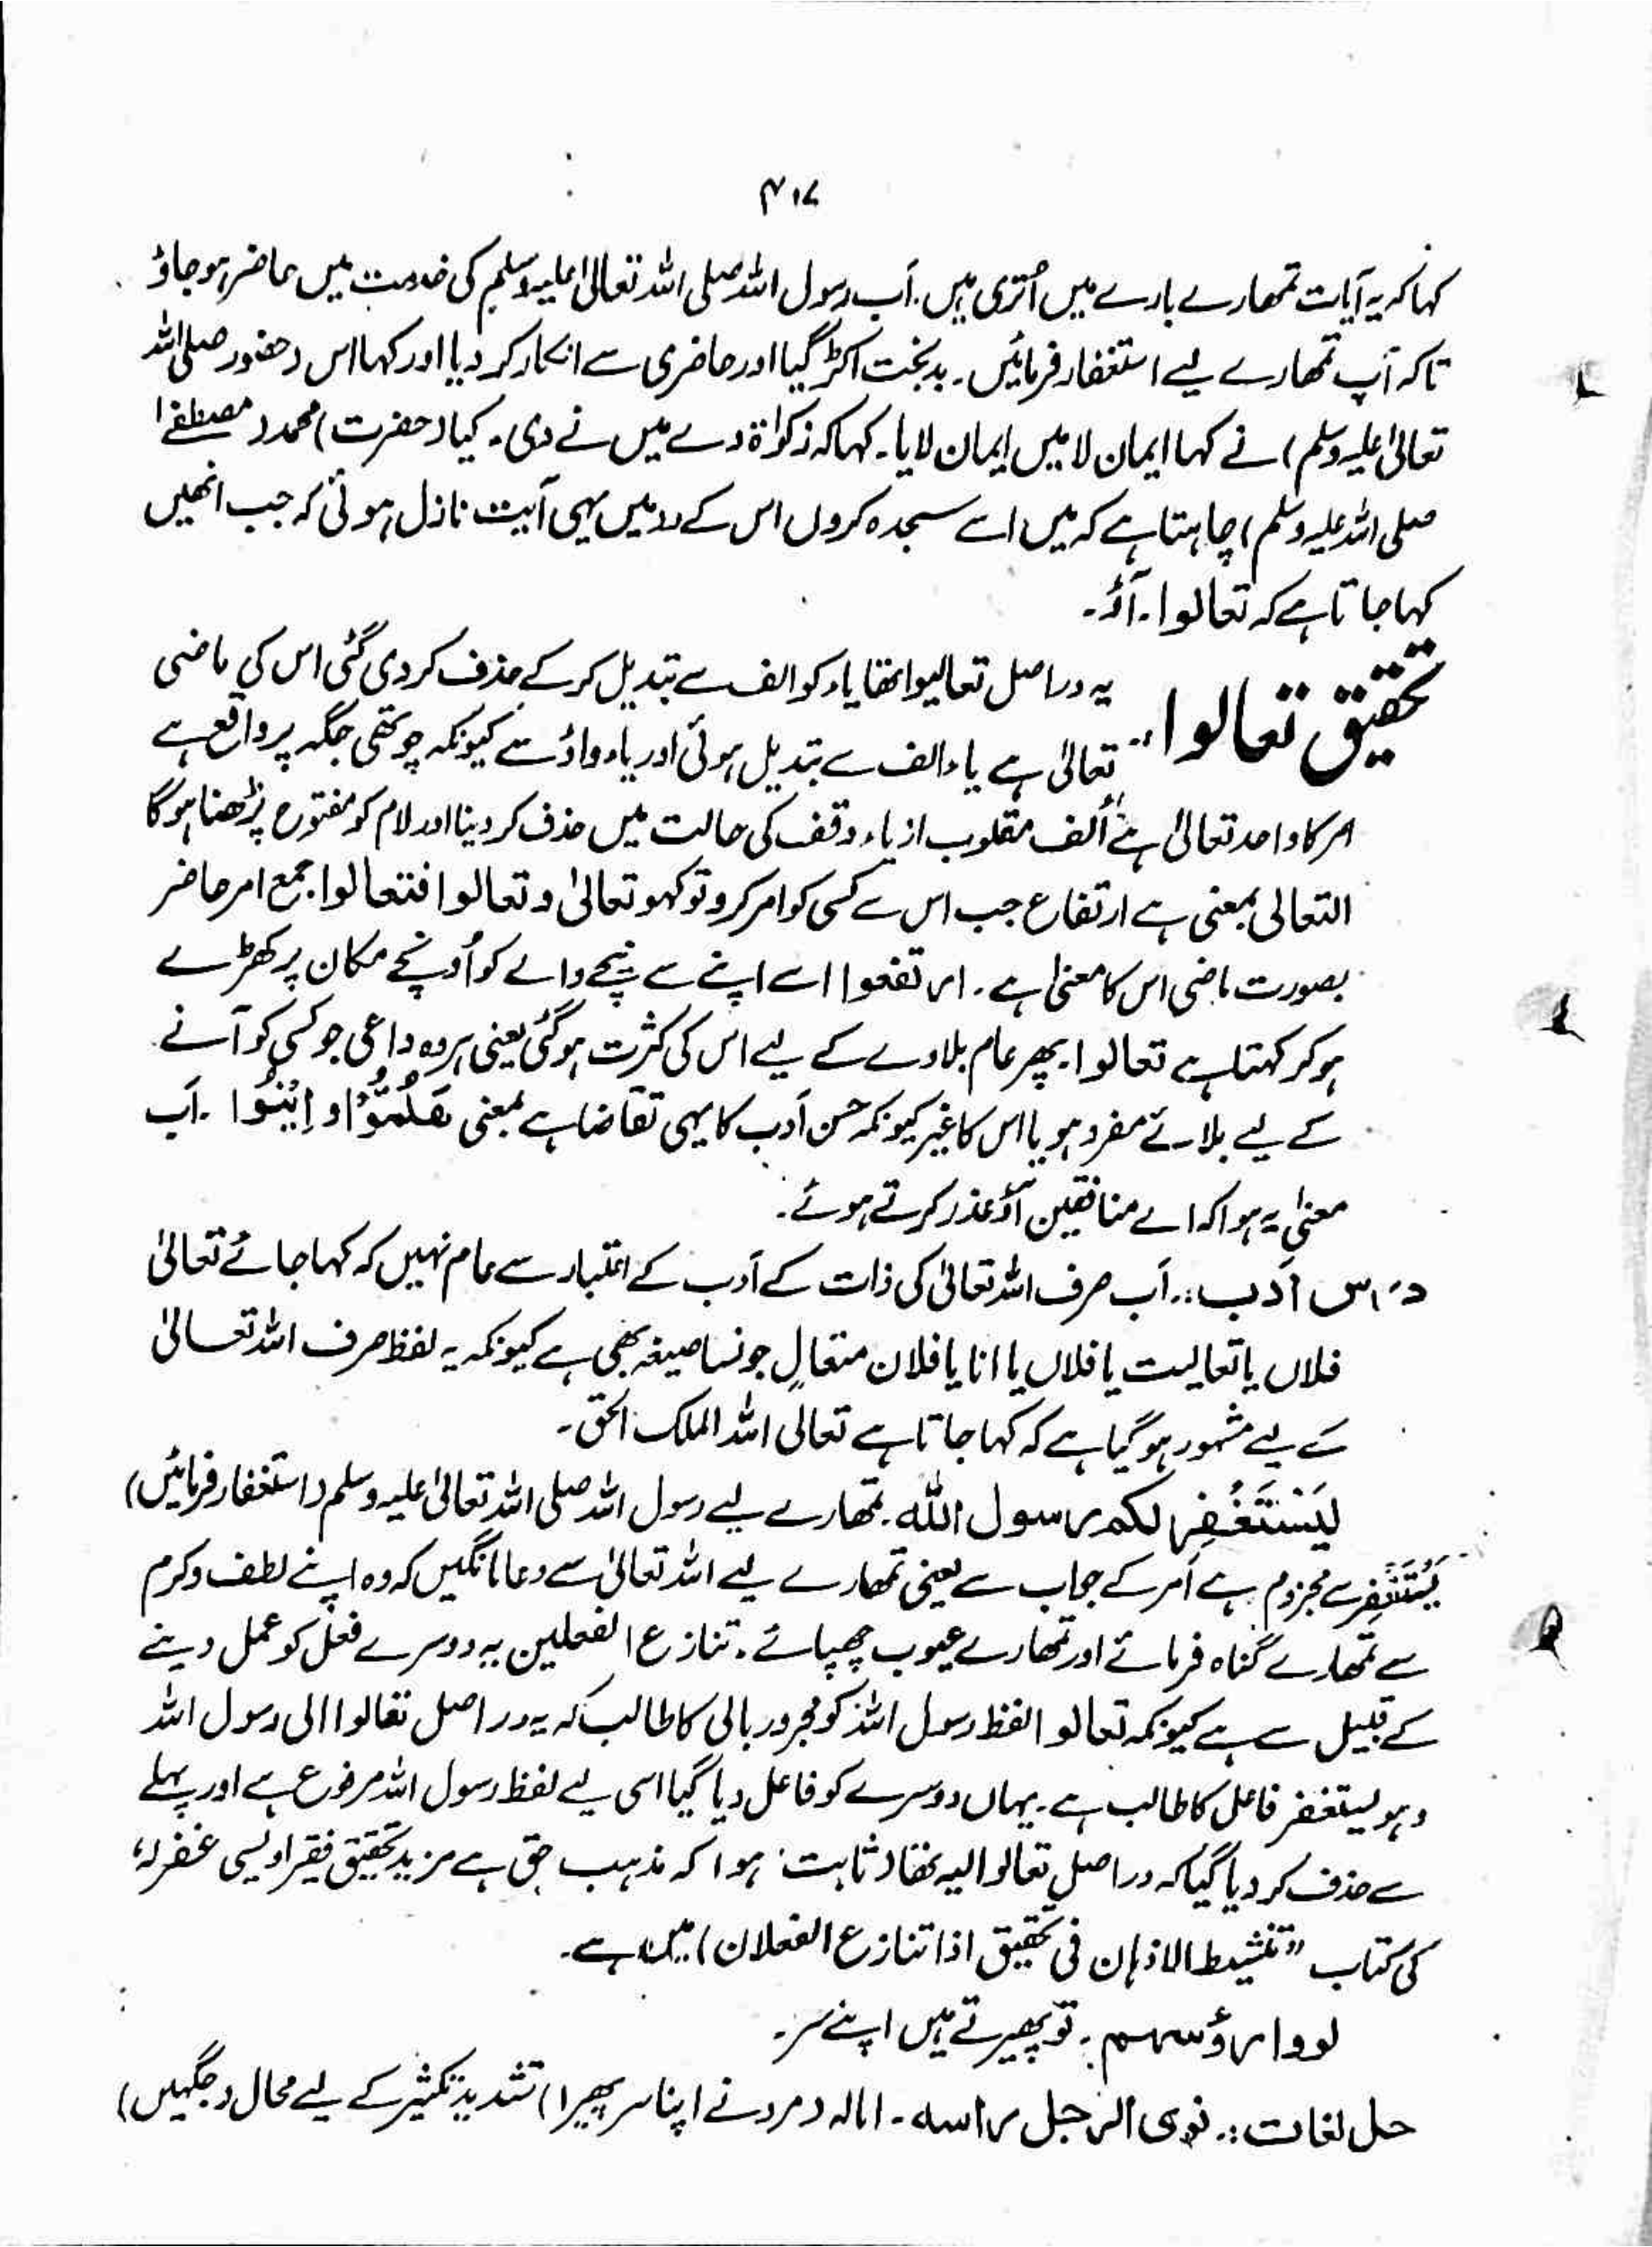 ۴۱۷
کہا کہ یہ آیات تمہارے بارے میں اُتری ہیں۔ آپ رسول اللہ صلی اللہ تعالیٰ علیہ وسلم کی خدمت میں حاضر ہو جاؤ
تاکہ آپ تمہارے لیے استغفار فرمائیں۔ بدبخت اکڑ گیا اور حاضری سے انکار کر دیا اور کہا اس (حضور صلی اللہ
تعالیٰ علیہ وسلم) نے کہا ایمان لا میں ایمان لایا۔ کہا کہ زکوٰۃ دے میں نے دی۔ کیا (حضرت) محمد (مصطفےٰ
صلی اللہ علیہ وسلم) چاہتا ہے کہ میں اسے سجدہ کروں اس کے رد میں یہی آیت نازل ہوئی کہ جب انھیں
کہا جاتا ہے کہ تعالوا۔ آؤ۔
تحقیق تعالوا :۔ یہ دراصل تعالیوا تھا یاء کو الف سے تبدیل کر کے حذف کر دی گئی اس کی ماضی
تعالیٰ ہے یاء الف سے تبدیل ہوئی اور یاء واؤ سے کیونکہ چوتھی جگہ پر واقع ہے
امر کا واحد تعالیٰ ہے الف مقلوب از یاء وقف کی حالت میں حذف کر دینا اور لام کو مفتوح پڑھنا ہوگا
التعالی بمعنی ہے ارتفاع جب اس سے کسی کو امر کرو تو کہو تعالیٰ و تعالوا فتعالوا جمع امر حاضر
بصورت ماضی اس کا معنیٰ ہے۔ ارتفعوا اسے اپنے سے نیچے والے کو اُونچے مکان پر کھڑے
ہو کر کہتا ہے تعالوا۔ پھر عام بلاوے کے لیے اس کی کثرت ہو گئی یعنی ہر وہ داعی جو کسی کو آنے
کے لیے بلائے مفرد ہو یا اس کا غیر کیونکہ حسن اَدب کا یہی تقاضا ہے بمعنی هَلُمُّوْا و اِیْتُوْا۔ اَب
معنیٰ یہ ہوا کہ اے منافقین آؤ عذر کرتے ہوئے۔
درس اَدب :۔ اَب صرف اللہ تعالیٰ کی ذات کے اَدب کے اعتبار سے عام نہیں کہ کہا جائے تعالیٰ
فلاں یا تعالیت یا فلاں یا انا یا فلان متعالٍ جونسا صیغہ بھی ہے کیونکہ یہ لفظ صرف اللہ تعالیٰ
کے لیے مشہور ہو گیا ہے کہ کہا جاتا ہے تعالی اللہ الملک الحق۔
لِیَسْتَغْفِر لکم رسول اللّٰہ۔ تمھارے لیے رسول اللہ صلی اللہ تعالیٰ علیہ وسلم (استغفار فرمائیں)
یَسْتَغْفِر سے مجزوم ہے اَمر کے جواب سے یعنی تمھارے لیے اللہ تعالیٰ سے دعا مانگیں کہ وہ اپنے لطف و کرم
سے تمھارے گناہ فرمائے اور تمھارے عیوب چھپائے۔ تنازع الفعلین یہ دوسرے فعل کو عمل دینے
کے قبیل سے ہے کیونکہ تعالوا لفظ رسول اللہ کو مجرور بالی کا طالب کہ یہ دراصل تعالوا الی رسول اللہ
وہو یستغفر فاعل کا طالب ہے۔ یہاں دوسرے کو فاعل دیا گیا اسی لیے لفظ رسول اللہ مرفوع ہے اور پہلے
سے حذف کر دیا گیا کہ دراصل تعالوا الیہ تھا (ثابت ہوا کہ مذہب حق ہے مزید تحقیق فقیر اویسی غفرلہٗ
کی کتاب "تنشیط الاذہان فی تحقیق اذا تنازع الفعلان) میں ہے۔
لووا رؤسہم۔ تو پھیرتے ہیں اپنے سر۔
حل لغات :۔ لوی الرجل راسہ۔ امالہ (مرد نے اپنا سر پھیرا) تشدید تکثیر کے لیے محال (جگہیں)